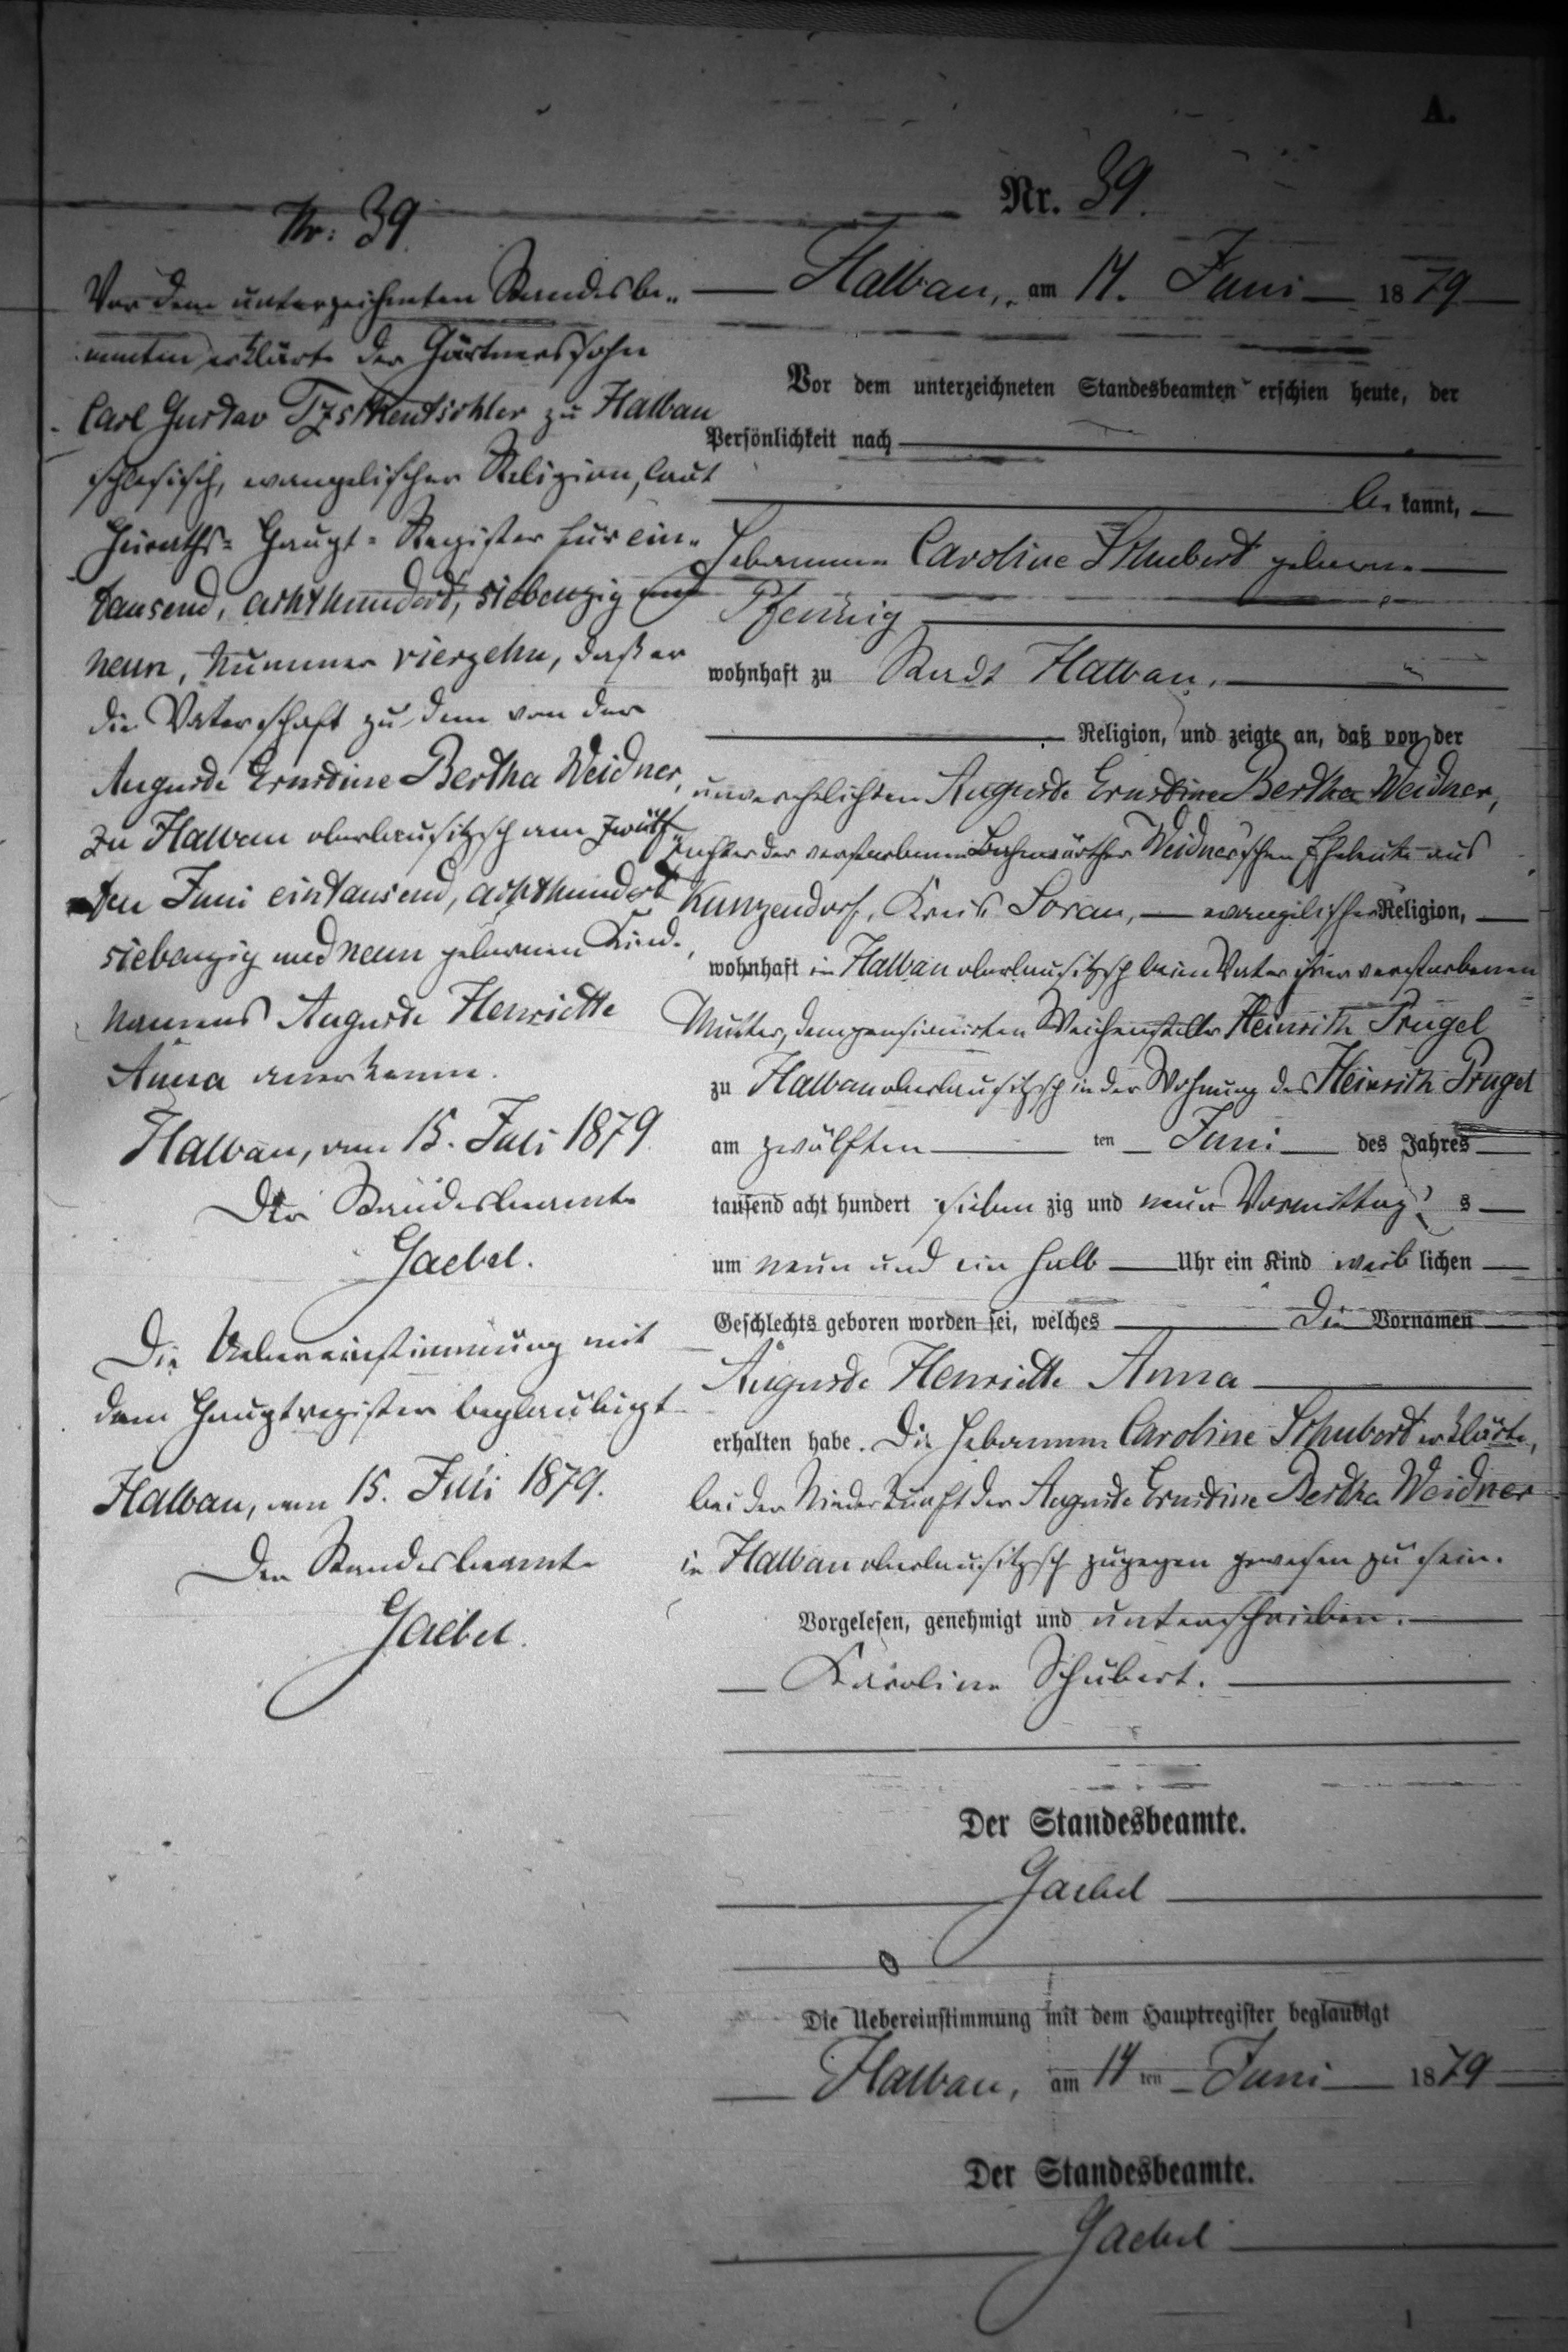 A.
Nr. 39.
Halbau, am 14. Juni 1879
Vor dem unterzeichneten Standesbeamten erschien heute, der
Persönlichkeit nach
be kannt,
Hebamme Caroline Schubert geborne
Pfennig
wohnhaft zu Stadt Halbau,
Religion, und zeigte an, daß von der
unverehelichten Auguste Ernstine Bertha Weidner,
Tochter der verstorbenen Bahnwärther Weidner'schen Eheleute aus
Kunzendorf, Kreis Sorau, evangelischer Religion,
wohnhaft in Halbau oberlausitzsch beim Vater ihrer verstorbenen
Mutter, dem pensionirten Weichensteller Heinrich Prugel
zu Halbau oberlausitzsch in der Wohnung des Heinrich Prugel
am zwölften ten Juni des Jahres
tausend acht hundert sieben zig und neun Vormittag s
um neun und ein halb Uhr ein Kind weib lichen
Geschlechts geboren worden sei, welches die Vornamen
Auguste Henriette Anna
erhalten habe. Die Hebamme Caroline Schubert erklärte,
bei der Niederkunft der Auguste Ernstine Bertha Weidner
in Halbau oberlausitzsch zugegen gewesen zu sein.
Vorgelesen, genehmigt und unterschrieben.
Karoline Schubert.
Der Standesbeamte.
Gaebel
Die Uebereinstimmung mit dem Hauptregister beglaubigt
Halbau, am 14 ten Juni 1879
Der Standesbeamte.
Gaebel
Nr: 39.
Vor dem unterzeichneten Standesbe-
amten erklärte der Gärtnerssohn
Carl Gustav Tzschentschler zu Halbau
schlesisch, evangelischer Religion, laut
Heiraths-Haupt-Register für ein-
tausend, achthundert, siebenzig und
neun, Nummer vierzehn, daß er
die Vaterschaft zu dem von der
Auguste Ernstine Bertha Weidner,
zu Halbau oberlausitzsch am zwölf-
ten Juni eintausend, achthundert
siebenzig und neun gebornen Kinde,
Namens Auguste Henriette
Anna anerkenne.
Halbau, am 15. Juli 1879.
Der Standesbeamte
Gaebel.
Die Uebereinstimmung mit
dem Hauptregister beglaubigt
Halbau, am 15. Juli 1879.
Der Standesbeamte
Gaebel.